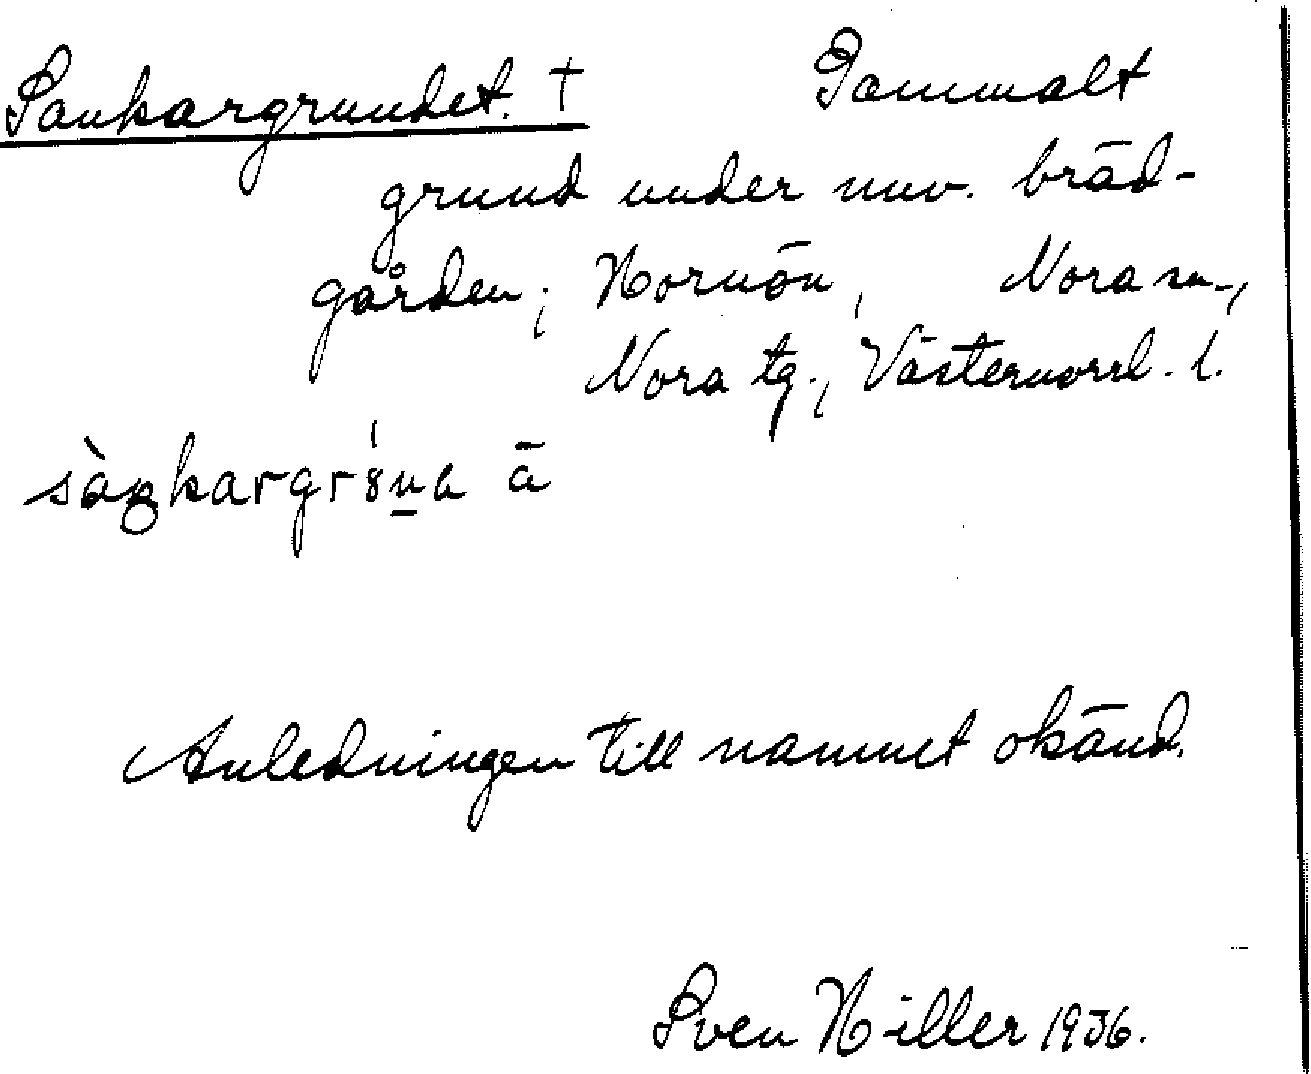 Sankargrundet. † Gammalt
grund under nuv. bräd-
gården; Hornön, Nora sn.,
Nora tg., Västernorrl. l.
ä
Anledningen till namnet okänd.
Sven Hiller 1936.